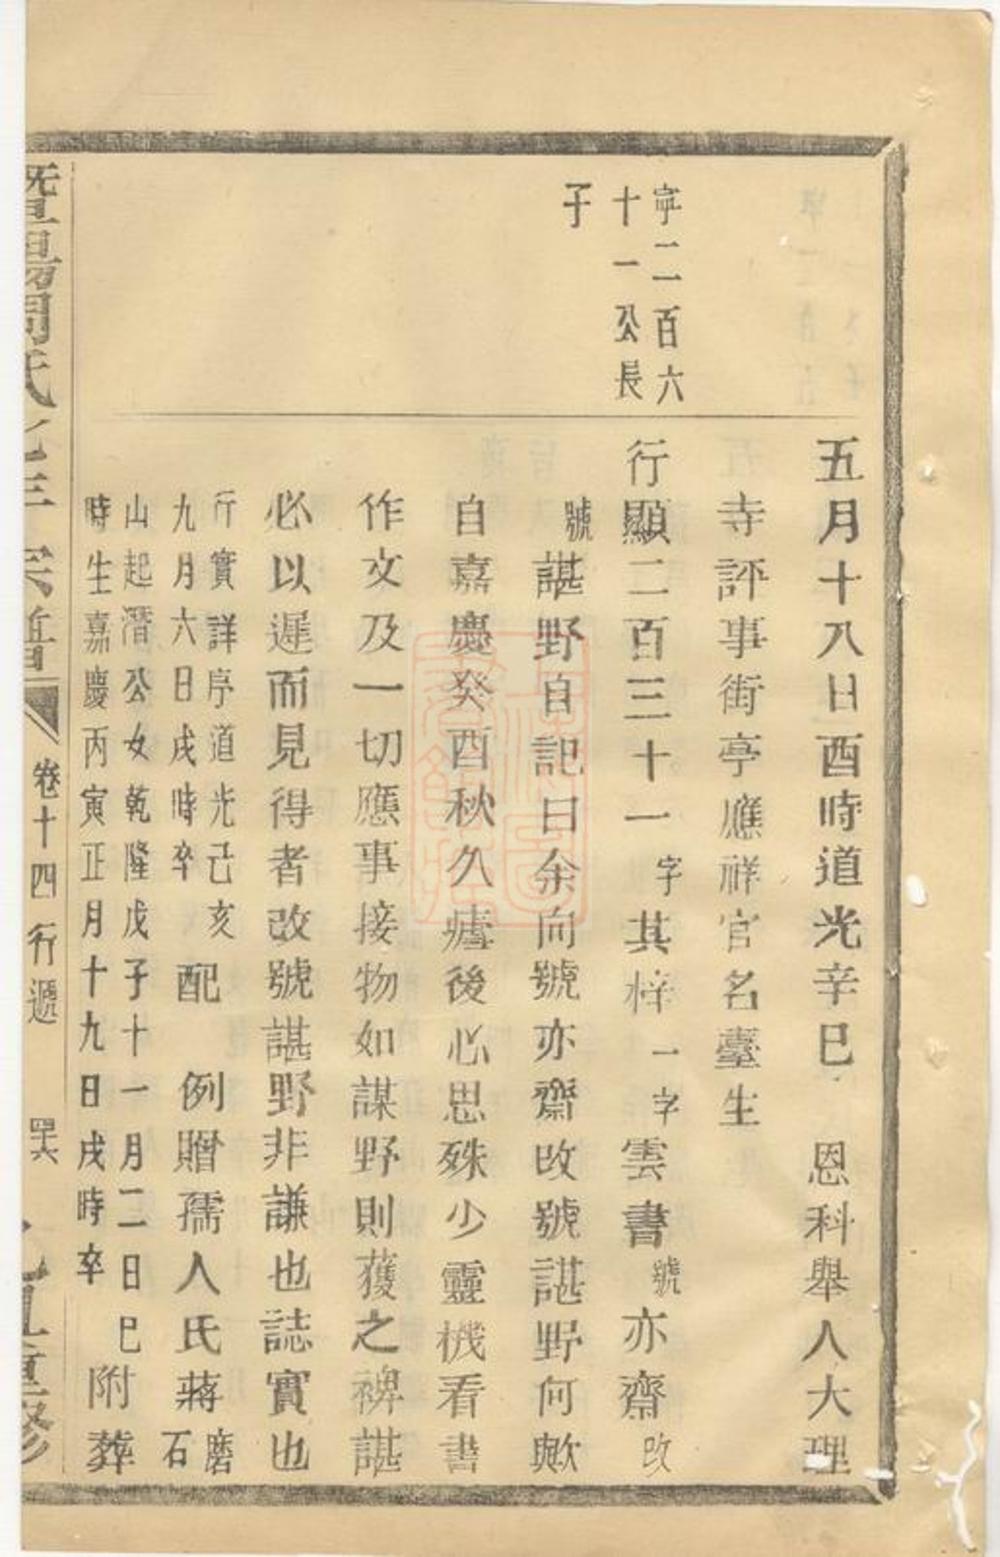 五月十八日酉時道光辛巳　恩科舉人大理
寺評事街亭應祥官名臺生
寧二百六
十一公長
子
行顯二百三十一字其梓一字雲書號亦齋改
號諶野自記曰余向號亦齋改號諶野何歟
自嘉慶癸酉秋久瘧後心思殊少靈機看書
作文及一切應事接物如謀野則獲之裨諶
必以遲而見得者改號諶野非謙也誌實也
行實詳序道光己亥
九月六日戌時卒
配　例贈孺人氏蔣磨石
山起潛公女乾隆戊子十一月二日巳
時生嘉慶丙寅正月十九日戌時卒
附葬
暨陽周氏 宗譜
卷十四行遞
四六
重修